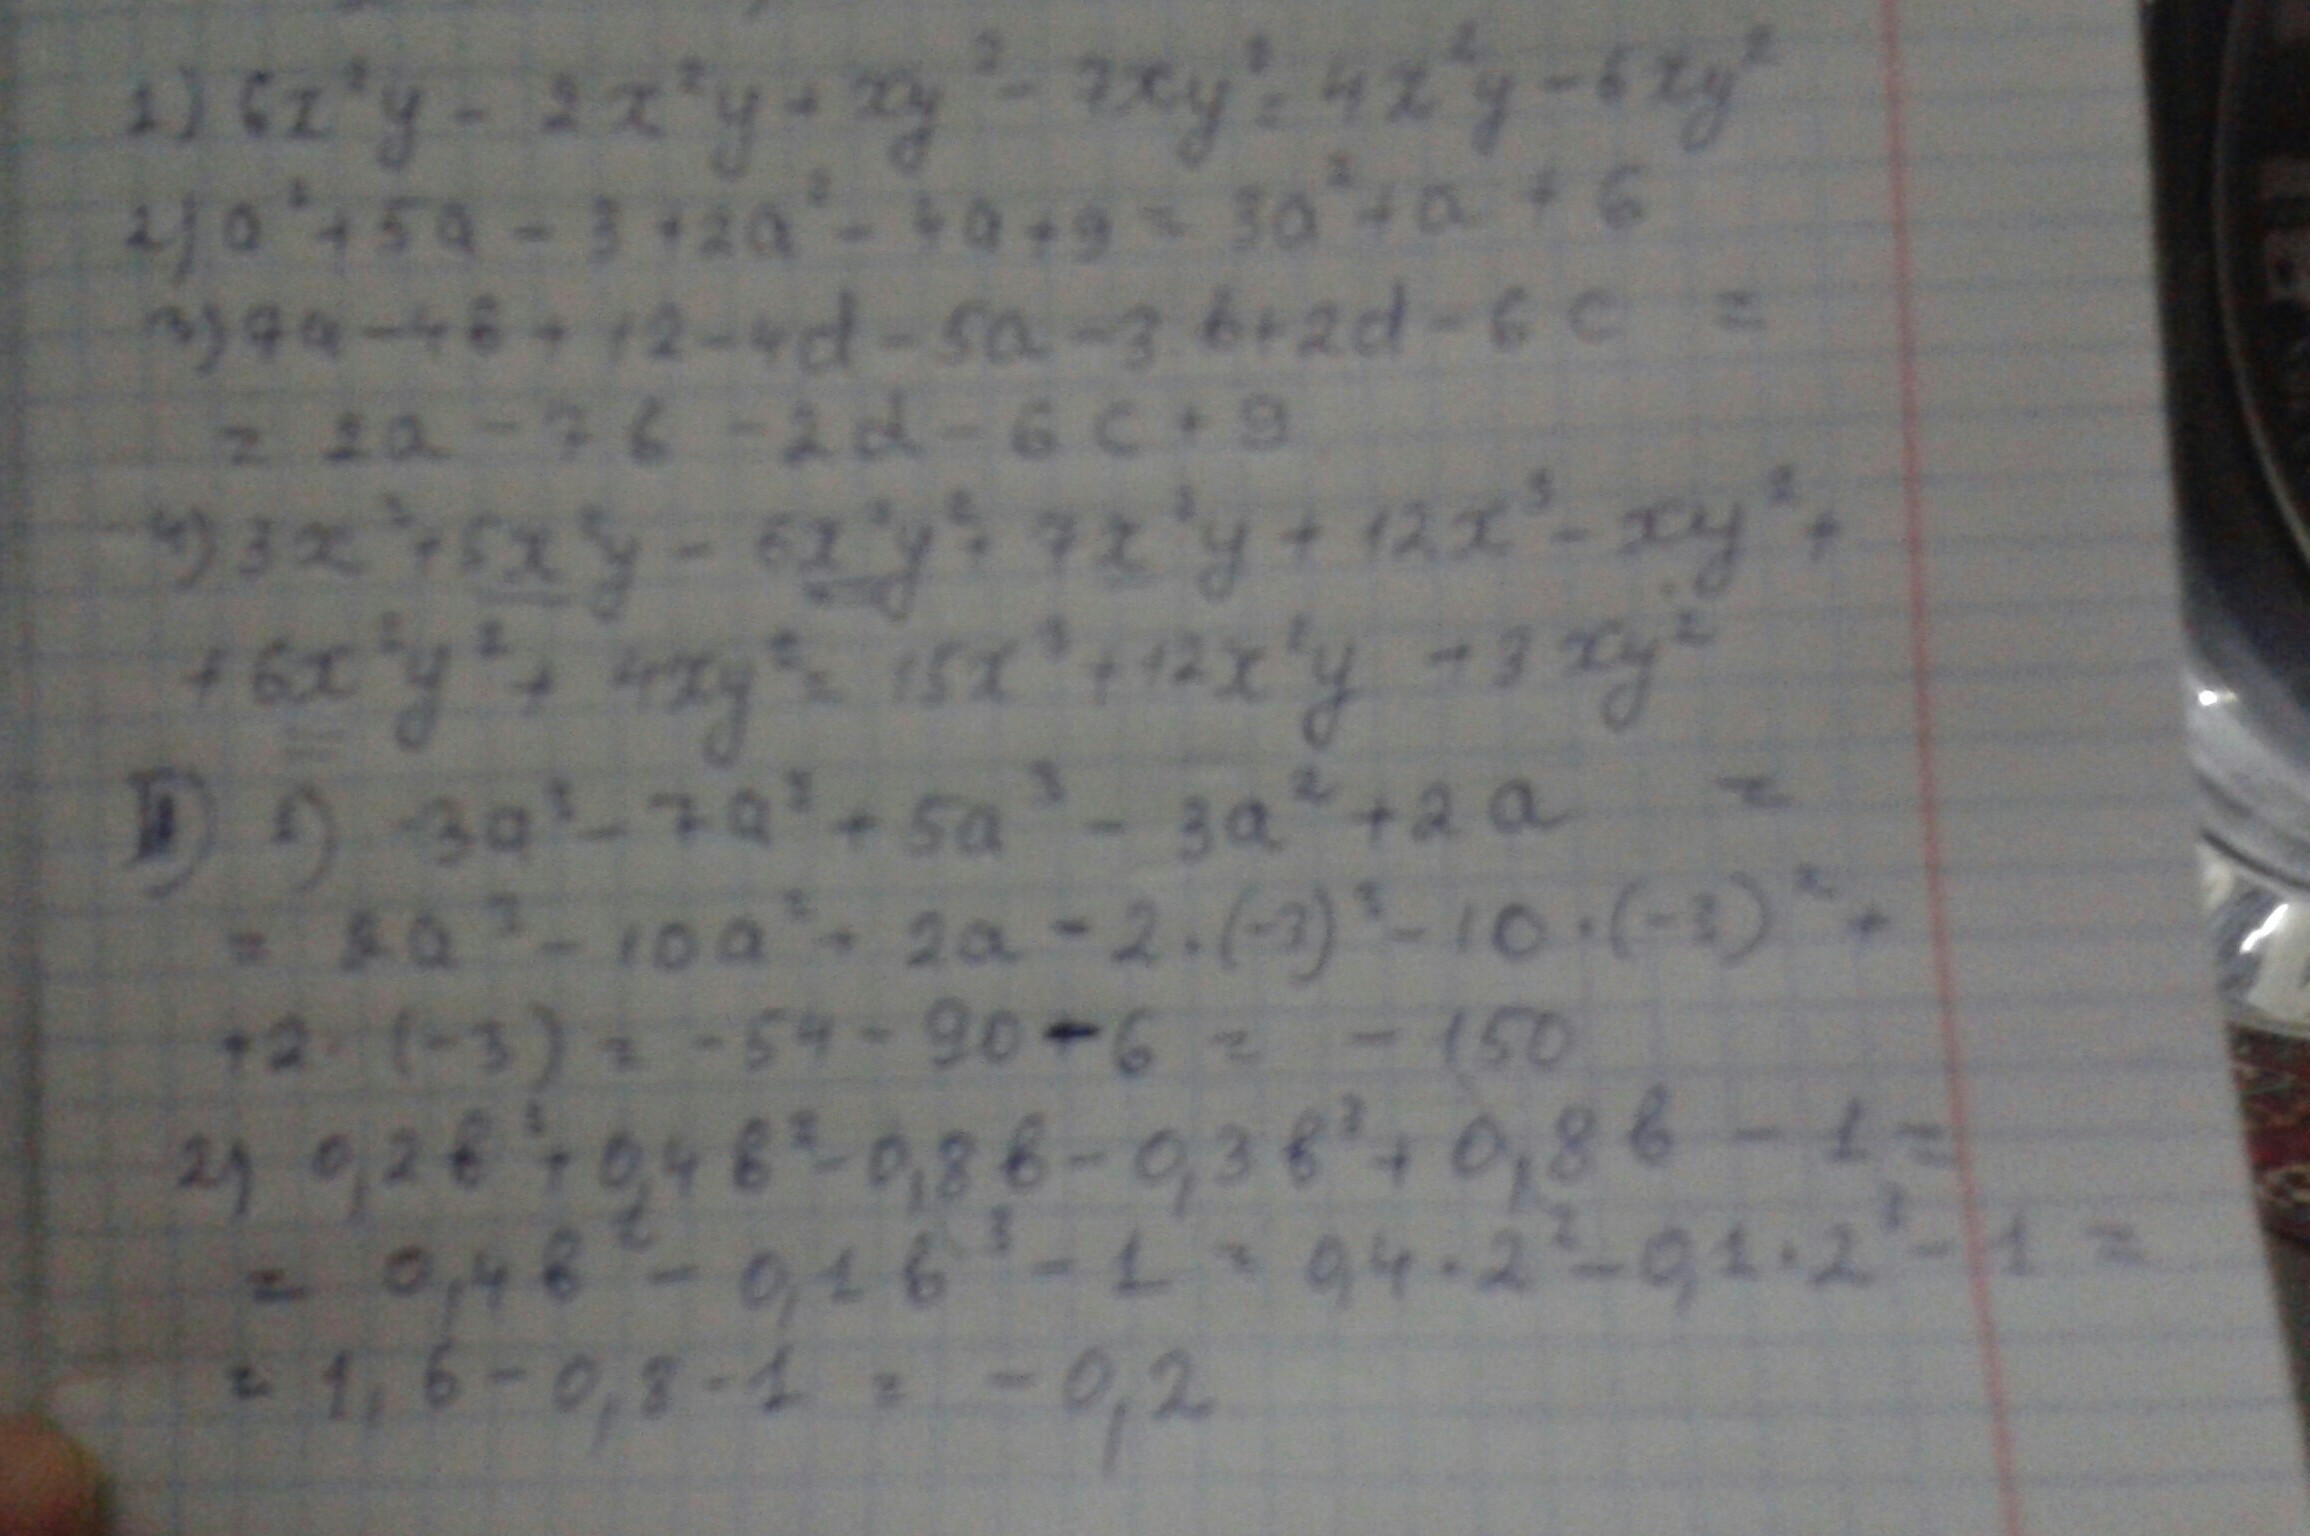 1) 6x²y - 2x²y + xy² - 7xy² = 4x²y - 6xy²
2) a² + 5a - 3 + 2a² - 4a + 9 = 3a² + a + 6
3) 7a - 4b + 12 - 4d - 5a - 3b + 2d - 6c =
= 2a - 7b - 2d - 6c + 9
4) 3x³ + 5x²y - 6x²y² + 7x²y + 12x³ - xy² +
+ 6x²y² + 4xy² = 15x³ + 12x²y + 3xy²
II) 1) -3a³ - 7a² + 5a³ - 3a² + 2a =
= 2a³ - 10a² + 2a = 2·(-3)³ - 10·(-3)² +
+ 2·(-3) = -54 - 90 - 6 = -150
2) 0,2b³ + 0,4b² - 0,8b - 0,3b³ + 0,8b - 1 =
= 0,4b² - 0,1b³ - 1 = 0,4·2² - 0,1·2³ - 1 =
= 1,6 - 0,8 - 1 = -0,2